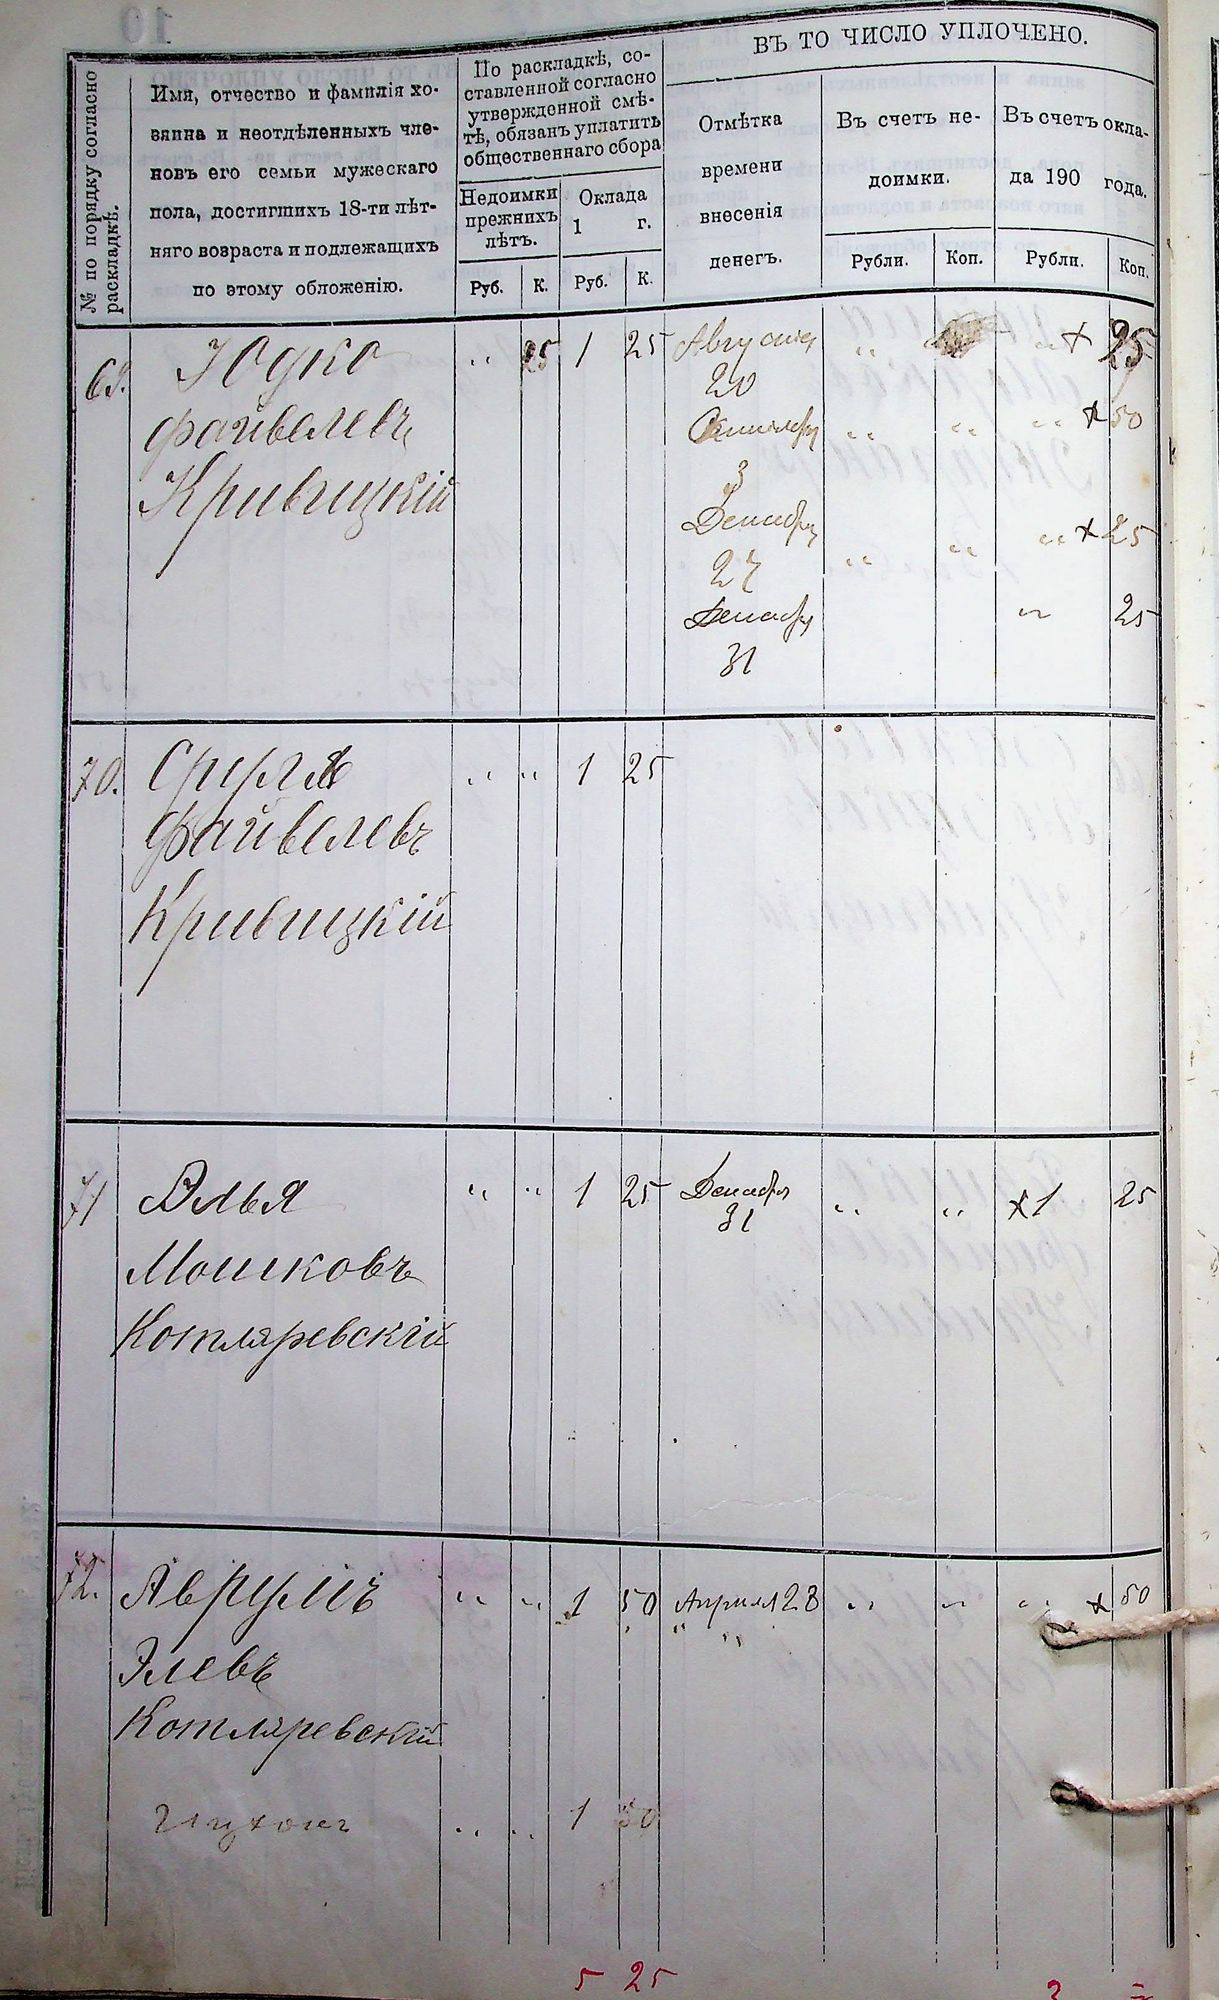 № по порядку согласно
раскладкѣ.
Имя, отчество и фамилія хо-
зяина и неотдѣленныхъ чле-
новъ его семьи мужескаго
пола, достигшихъ 18-ти лѣт-
няго возраста и подлежащихъ
по этому обложенію.
По раскладкѣ, со-
ставленной согласно
утвержденной смѣ-
тѣ, обязанъ уплатить
общественнаго сбора
Недоимки
прежнихъ
лѣтъ.
Оклада
1 г.
Руб. К. Руб. К.
ВЪ ТО ЧИСЛО УПЛОЧЕНО.
Отмѣтка
времени
внесенія
денегъ.
Въ счетъ не-
доимки.
Въ счетъ окла-
да 190 года.
Рубли. Коп. Рубли. Коп.
69. Юдко " 25 1 25 Августа " " + 25
20
Файвелевъ " " " + 50
3
Кривицкій
Декабря " " " + 25
27
Декабря " 25
31
70. Сруль " " 1 25
Файвелевъ
Кривицкій
71 Элья " " 1 25 Декабря " " + 1 25
31
Мошковъ
Котляревскій
72. Аврумъ " " 1 50 Апрѣля 28 " " " + 50
" "
Элевъ
Котляревскій
" " 1 50
5 25